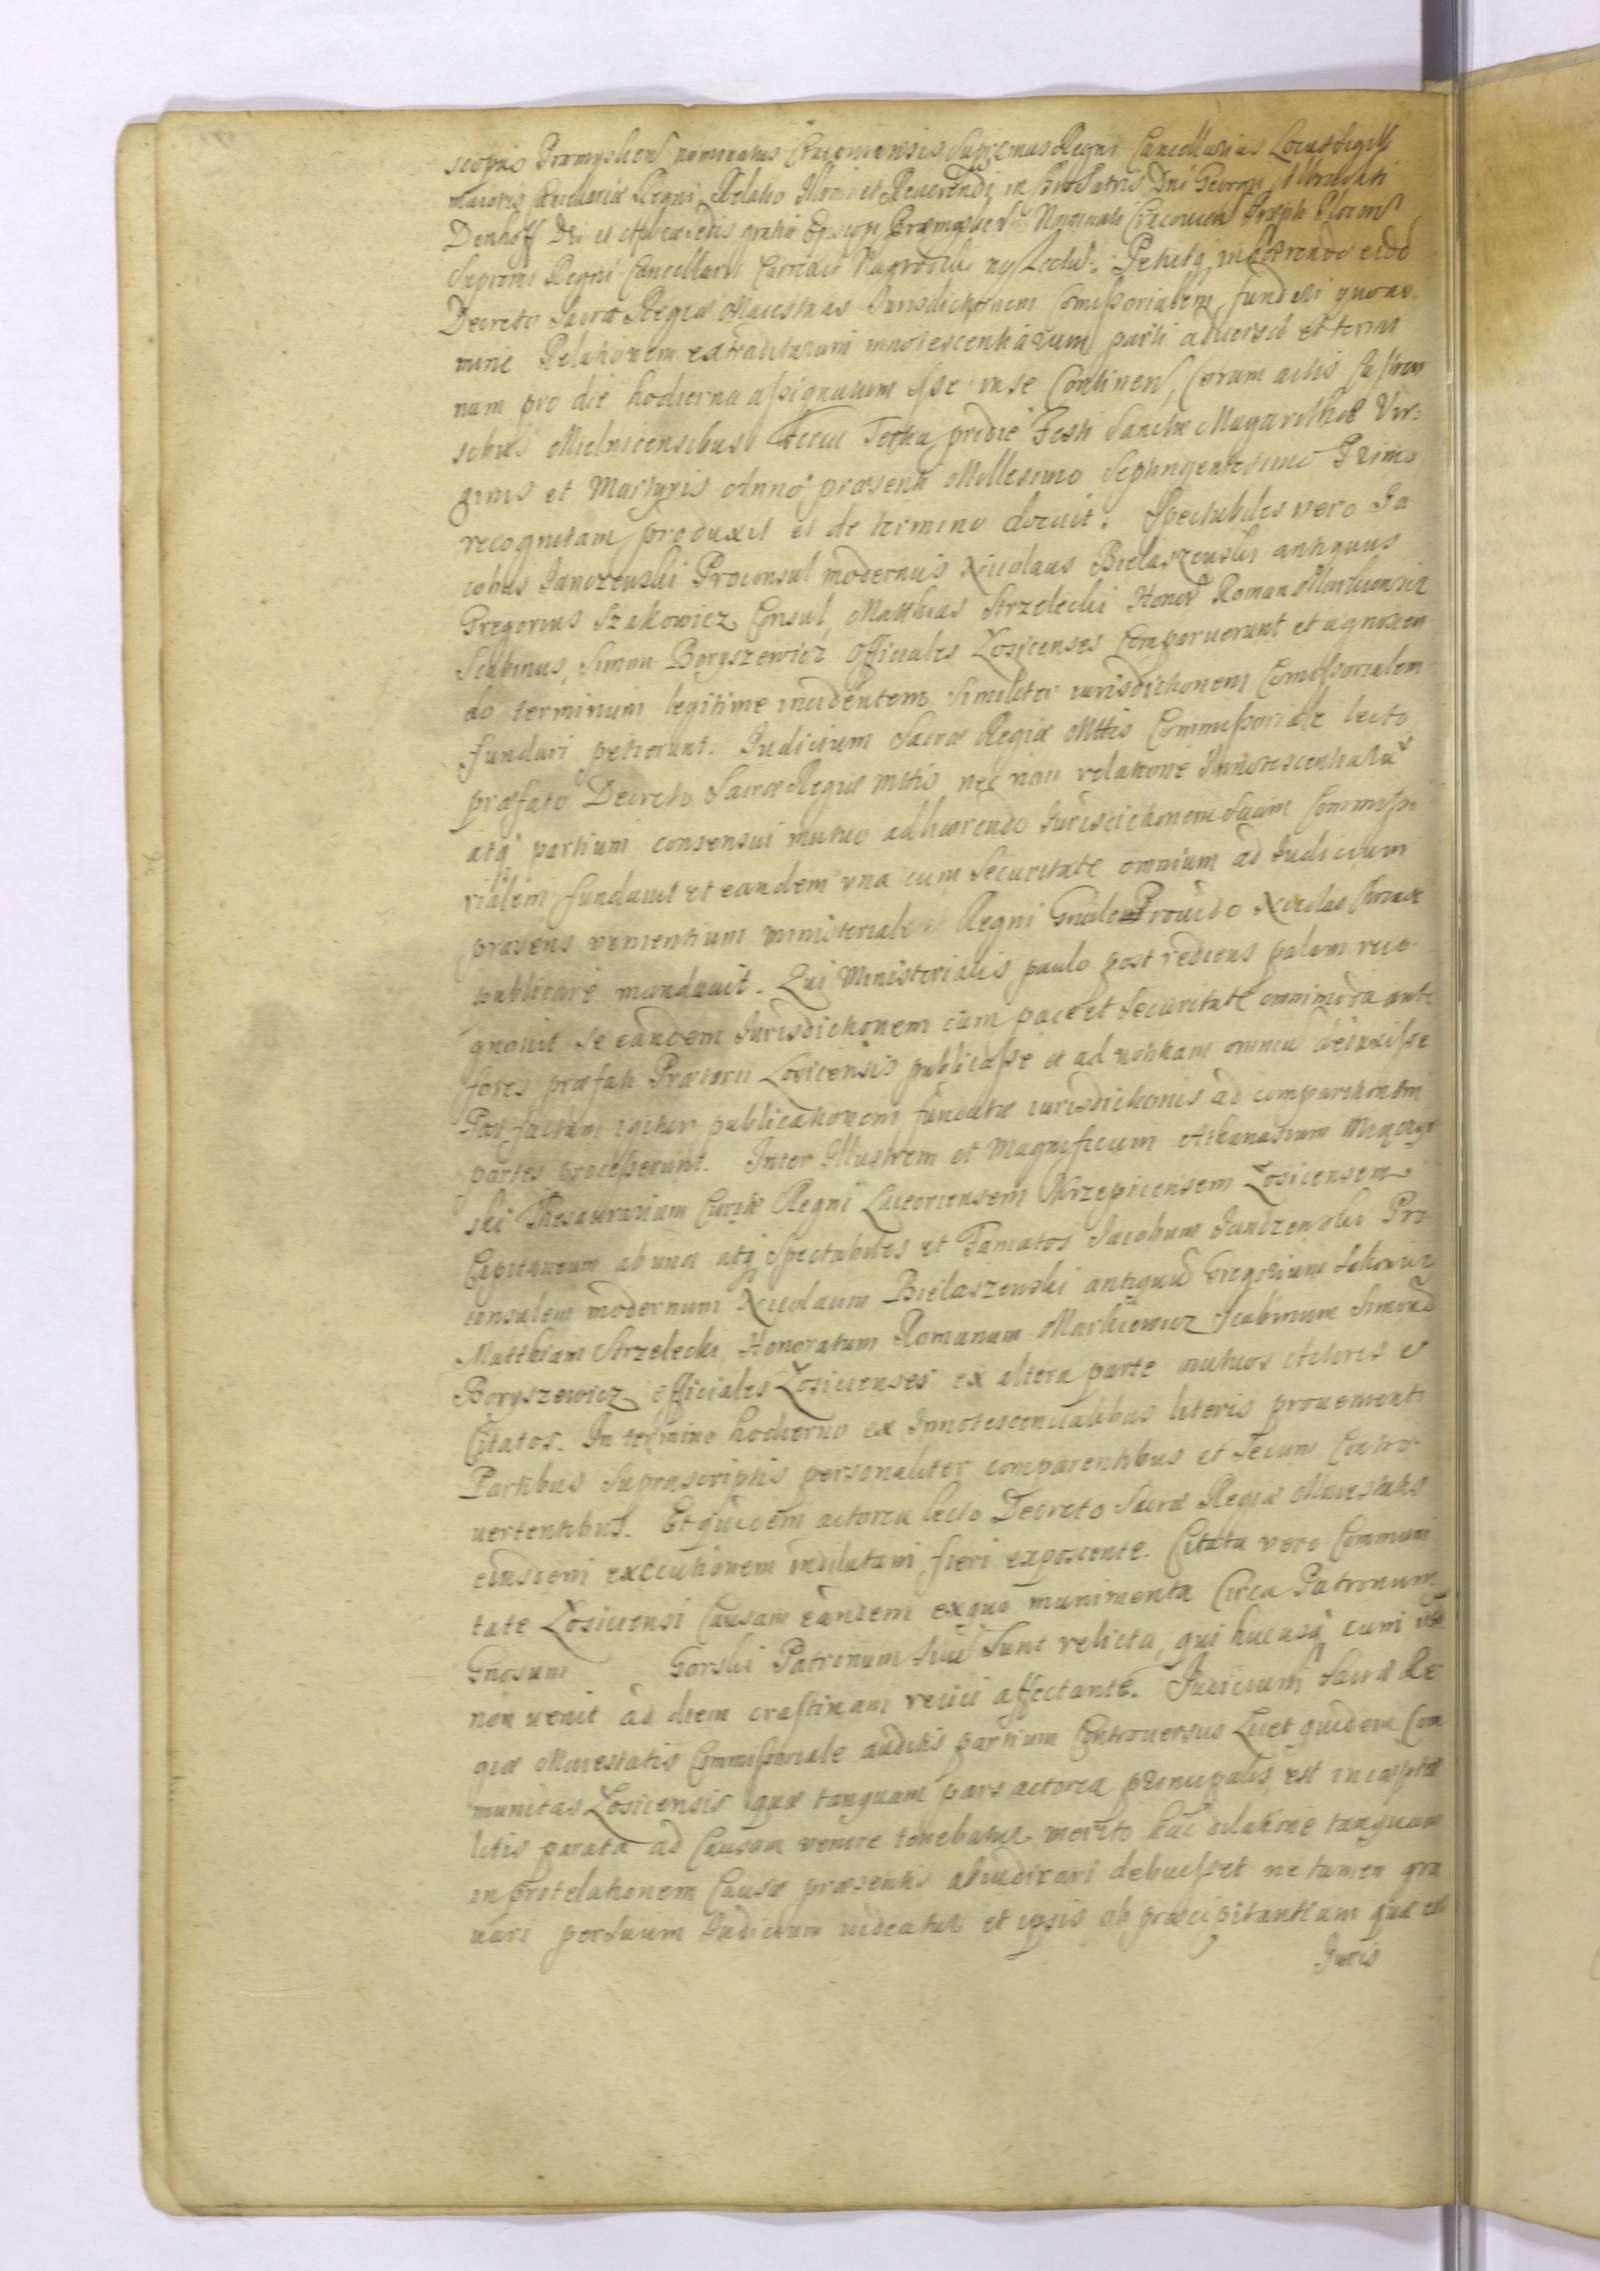 scopus Præmyslien nominatus Cracoviensis Supremus Regni Cancellarius Locus Sigilli
maioris Cancellariæ Regni Relatio Illmi et Reverendi in Xsto Patris Dni Georgii Alberti
Denhoff Dei et Apcæ Sedis gratia Episcopi Præmyslien Nominati Cracovien
Supremi Regni Cancellarii
Decreto Sacræ Regiæ Maiestatis Jurisdictionem Comissorialem fundari quoad
nunc Relationem extraditarum innotescentiarum parti adversæ et termi
num pro die hodierna assignatum esse in se Continen, Coram actis
sibus Mielnicensibus Feria Tertia pridie Festi Sanctæ Magarethæ Vir-
ginis et Martyris Anno præsenti Millesimo Septingentesimo Primo
recognitam produxit et de termino docuit. Spectabiles vero Ja
cobus Janczewski Proconsul modernus Nicolaus Bielaszewski antiquus
Gregorius Szakowicz Consul, Matthias Strzelecki Honor Roman Markiewicz
Scabinus, Simon Boryszewicz Officiales Łosicenses Comparuerunt et agnoscen
do terminum legitime incidentem similiter iurisdictionem Comissorialem
fundari petierunt. Judicium Sacræ Regiæ Mttis Commissoriale lecto
præfato Decreto Sacræ Regiæ Mttis nec non relatione Innotescentiarũ
atq partium consensui mutuo adhærendo Jurisdictionem suam Commisso
rialem fundavit et eandem una cum Securitate omnium ad Judicium
præsens venientium ministerialem Regni Gnãlem Providũ
publicari mandavit. Qui Ministerialis paulo post rediens palam reco-
gnovit se eandem Jurisdictionem cum pace et Securitate omnimoda ante
fores præfati Prætorii Łosicensis publicasse et ad notitiam omniũ deduxisse
Post factam igitur publicationem fundatæ iurisdictionis ad comparitionem
partes processerunt. Inter Illustrem et Magnificum Athanasium Miączyn
ski Thesaurarium Curiæ Regni Luceoriensem Krzepicensem Łosicensem
Capitaneum ab una atq Spectabiles et Famatos Jacobum Janczewski Pro
consulem modernum Nicolaum Bielaszewski antiquũ Gregorium Sakowicz
Matthiam Strzelecki, Honoratum Romanum Markiewicz Scabinum Simonẽ
Boryszewicz officiales Łosicenses ex altera parte mutuos Actores et
Citatos. In termino hodierno ex Innotescentialibus literis provenienti
Partibus suprascriptis personaliter comparentibus et secum Contro-
vertentibus. Et quidem actorea lecto Decreto Sacræ Regiæ Maiestatis
eiusdem executionem indilatam fieri exposcente. Citata vero Communi
tate Łosicensi Causam eandem exquo munimenta Circa Patronum
Gnosum Gorski Patronum suũ sunt relicta, qui hucusq cum iis
non venit ad diem crastinam reiici affectante. Judicium Sacræ Re
giæ Maiestatis Commissoriale auditis partium Controversiis Licet quidem Com
munitas Łosicensis quæ tanquam pars actorea principalis est
litis parata ad Causam venire tenebatur merito hac dilatione tanquam
in protelationem Causæ præsentis abiudicari debuisset ne tamen gra
vari per suum Judicium videatur et ipsis ob præcipitantiam quæ est
Juris